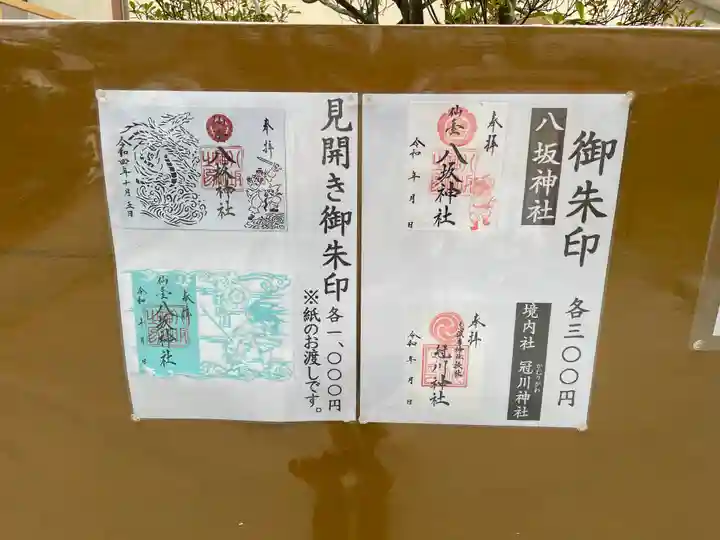 御朱印 各三〇〇円
八坂神社
奉拝
仙臺 八坂神社
令和 年 月 日
境内社 冠川神社
かむりがわ
奉拝
冠川神社
令和 年 月 日
見開き御朱印 各一、〇〇〇円
※紙のお渡しです。
奉拝
八坂神社
令和四年十月五日
奉拝
仙臺 八坂神社
令和 年 月 日